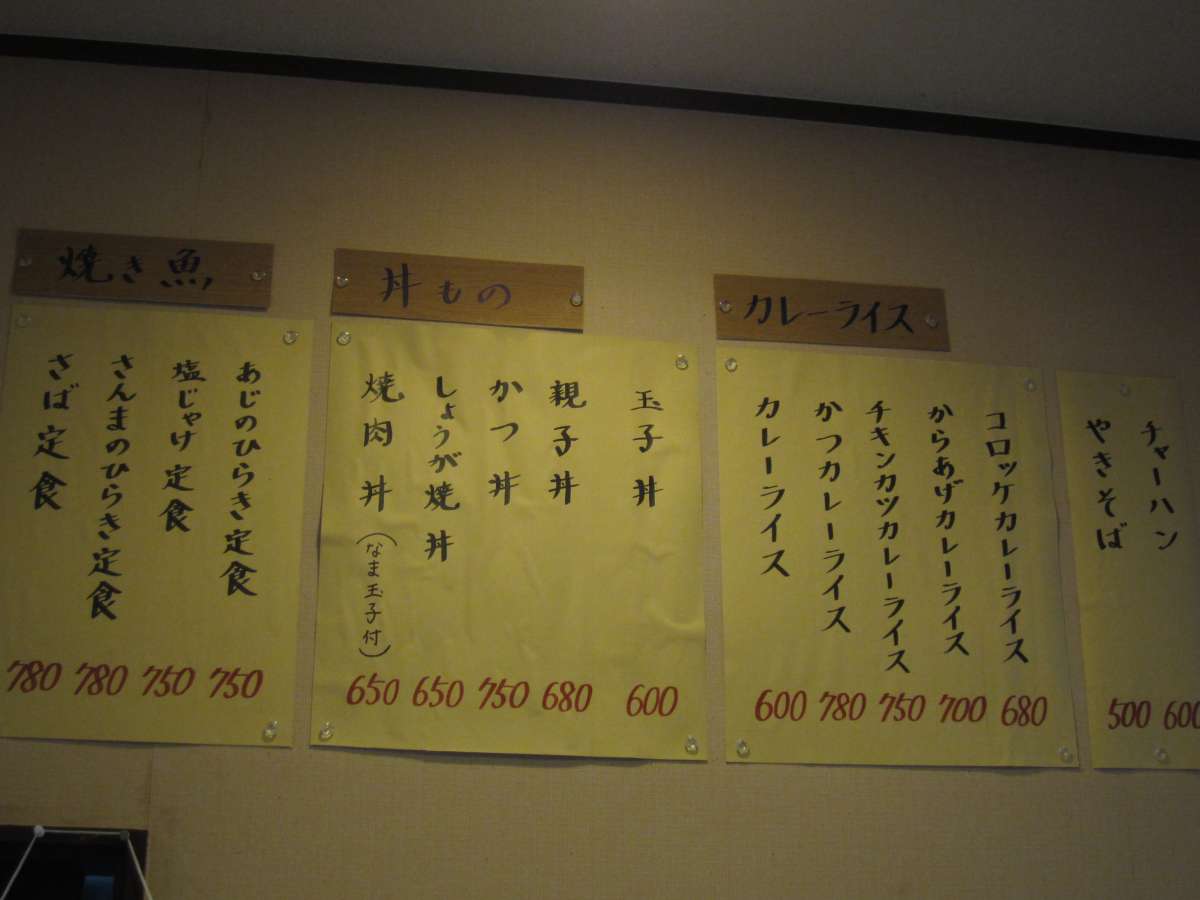 焼き魚
あじのひらき定食 750
塩じゃけ定食 750
さんまのひらき定食 780
さば定食 780
丼もの
玉子丼 600
親子丼 680
かつ丼 750
しょうが焼丼 650
焼肉丼(なま玉子付) 650
カレーライス
コロッケカレーライス 680
からあげカレーライス 700
チキンカツカレーライス 750
かつカレーライス 780
カレーライス 600
チャーハン 600
やきそば 500